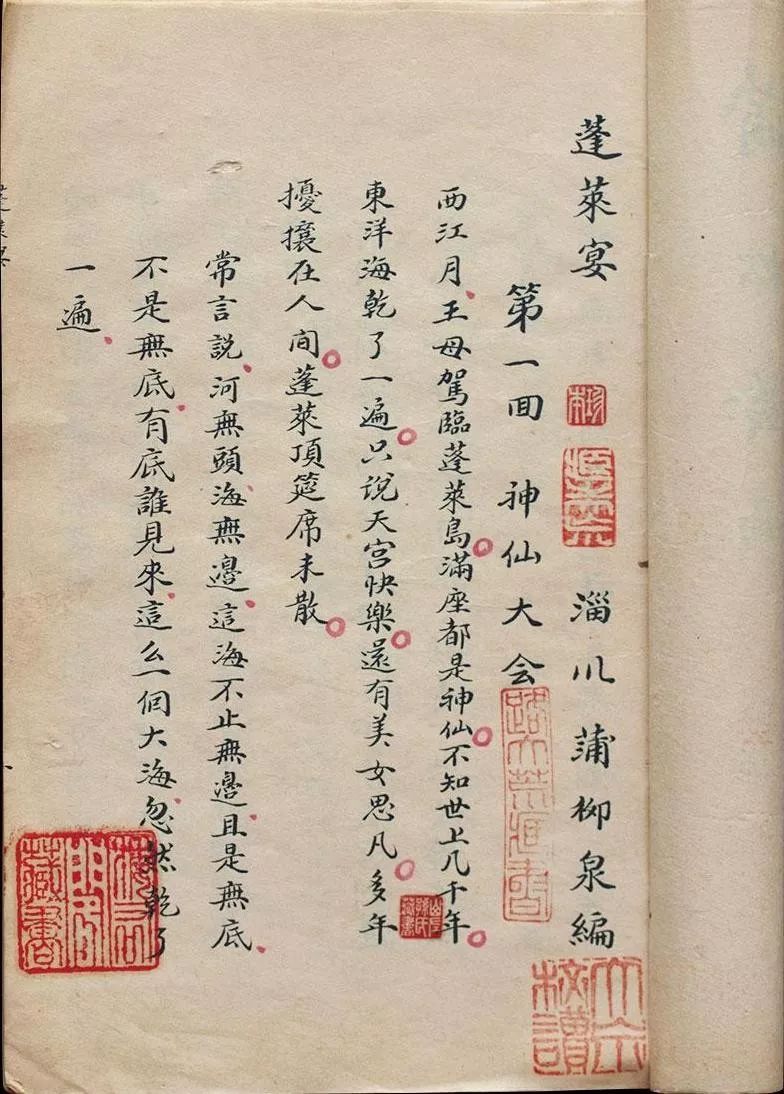 蓬萊宴　淄川蒲柳泉編
第一回　神仙大会
西江月、王母駕臨蓬萊島。滿座都是神仙。不知世上几千年。
東洋海乾了一遍。只说天宫快樂。還有美女思凡。多年
擾攘在人间。蓬萊頂筵席未散。
常言説、河無頭、海無邊、這海不止無邊、且是無底、
不是無底、有底誰見來、這么一個大海、忽然乾了
一遍、
路大荒藏書
大荒校讀